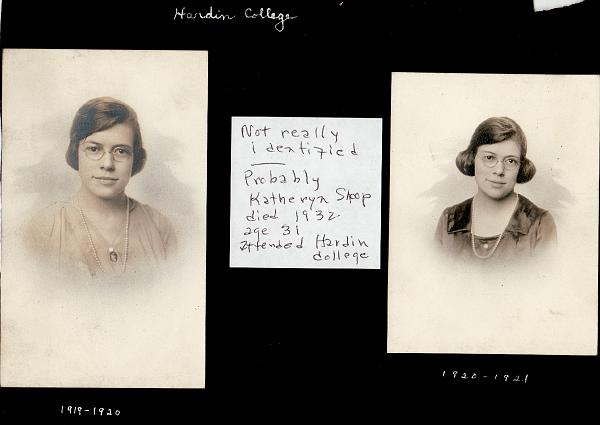 Hardin College
Not really
identified
Probably
Katheryn Shoop
died 1932
age 31
attended Hardin
college
1919-1920
1920-1921